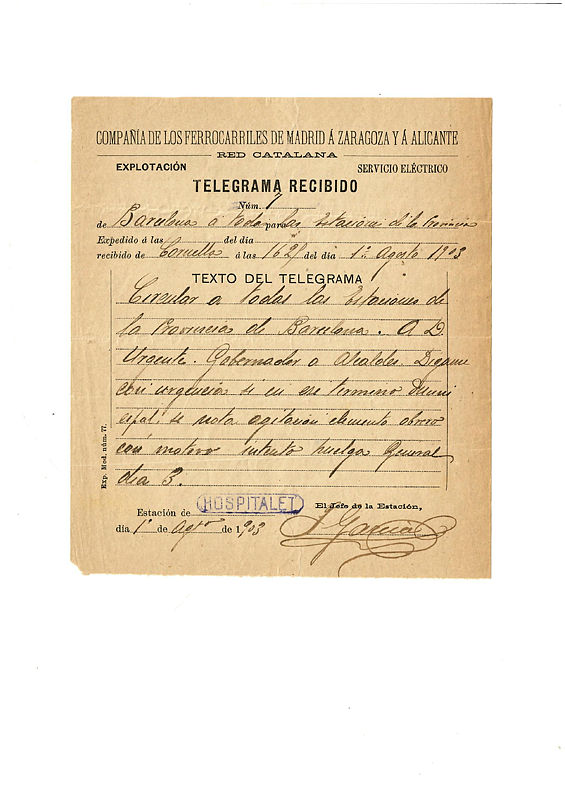 COMPAÑÍA DE LOS FERROCARRILES DE MADRID Á ZARAGOZA Y Á ALICANTE
RED CATALANA
EXPLOTACIÓN SERVICIO ELÉCTRICO
TELEGRAMA RECIBIDO
Núm. 7
de Barcelona a todas para las Estaciones de la Provincia
Expedido á las del día
recibido de Cornella á las 16 2 del día 1º Agosto 1903
TEXTO DEL TELEGRAMA
Circular a todas las Estaciones de
la Provincia de Barcelona. A D.
Urgente. Gobernador a Alcaldes. Digame
con urgencia si en ese termino Muni
cipal, se nota agitacion elemento obrero
con motivo intento huelga General
dia 3.
Exp. Mod. núm. 77.
Estación de HOSPITALET El Jefe de la Estación,
día 1º de Agto de 1903 Garcia